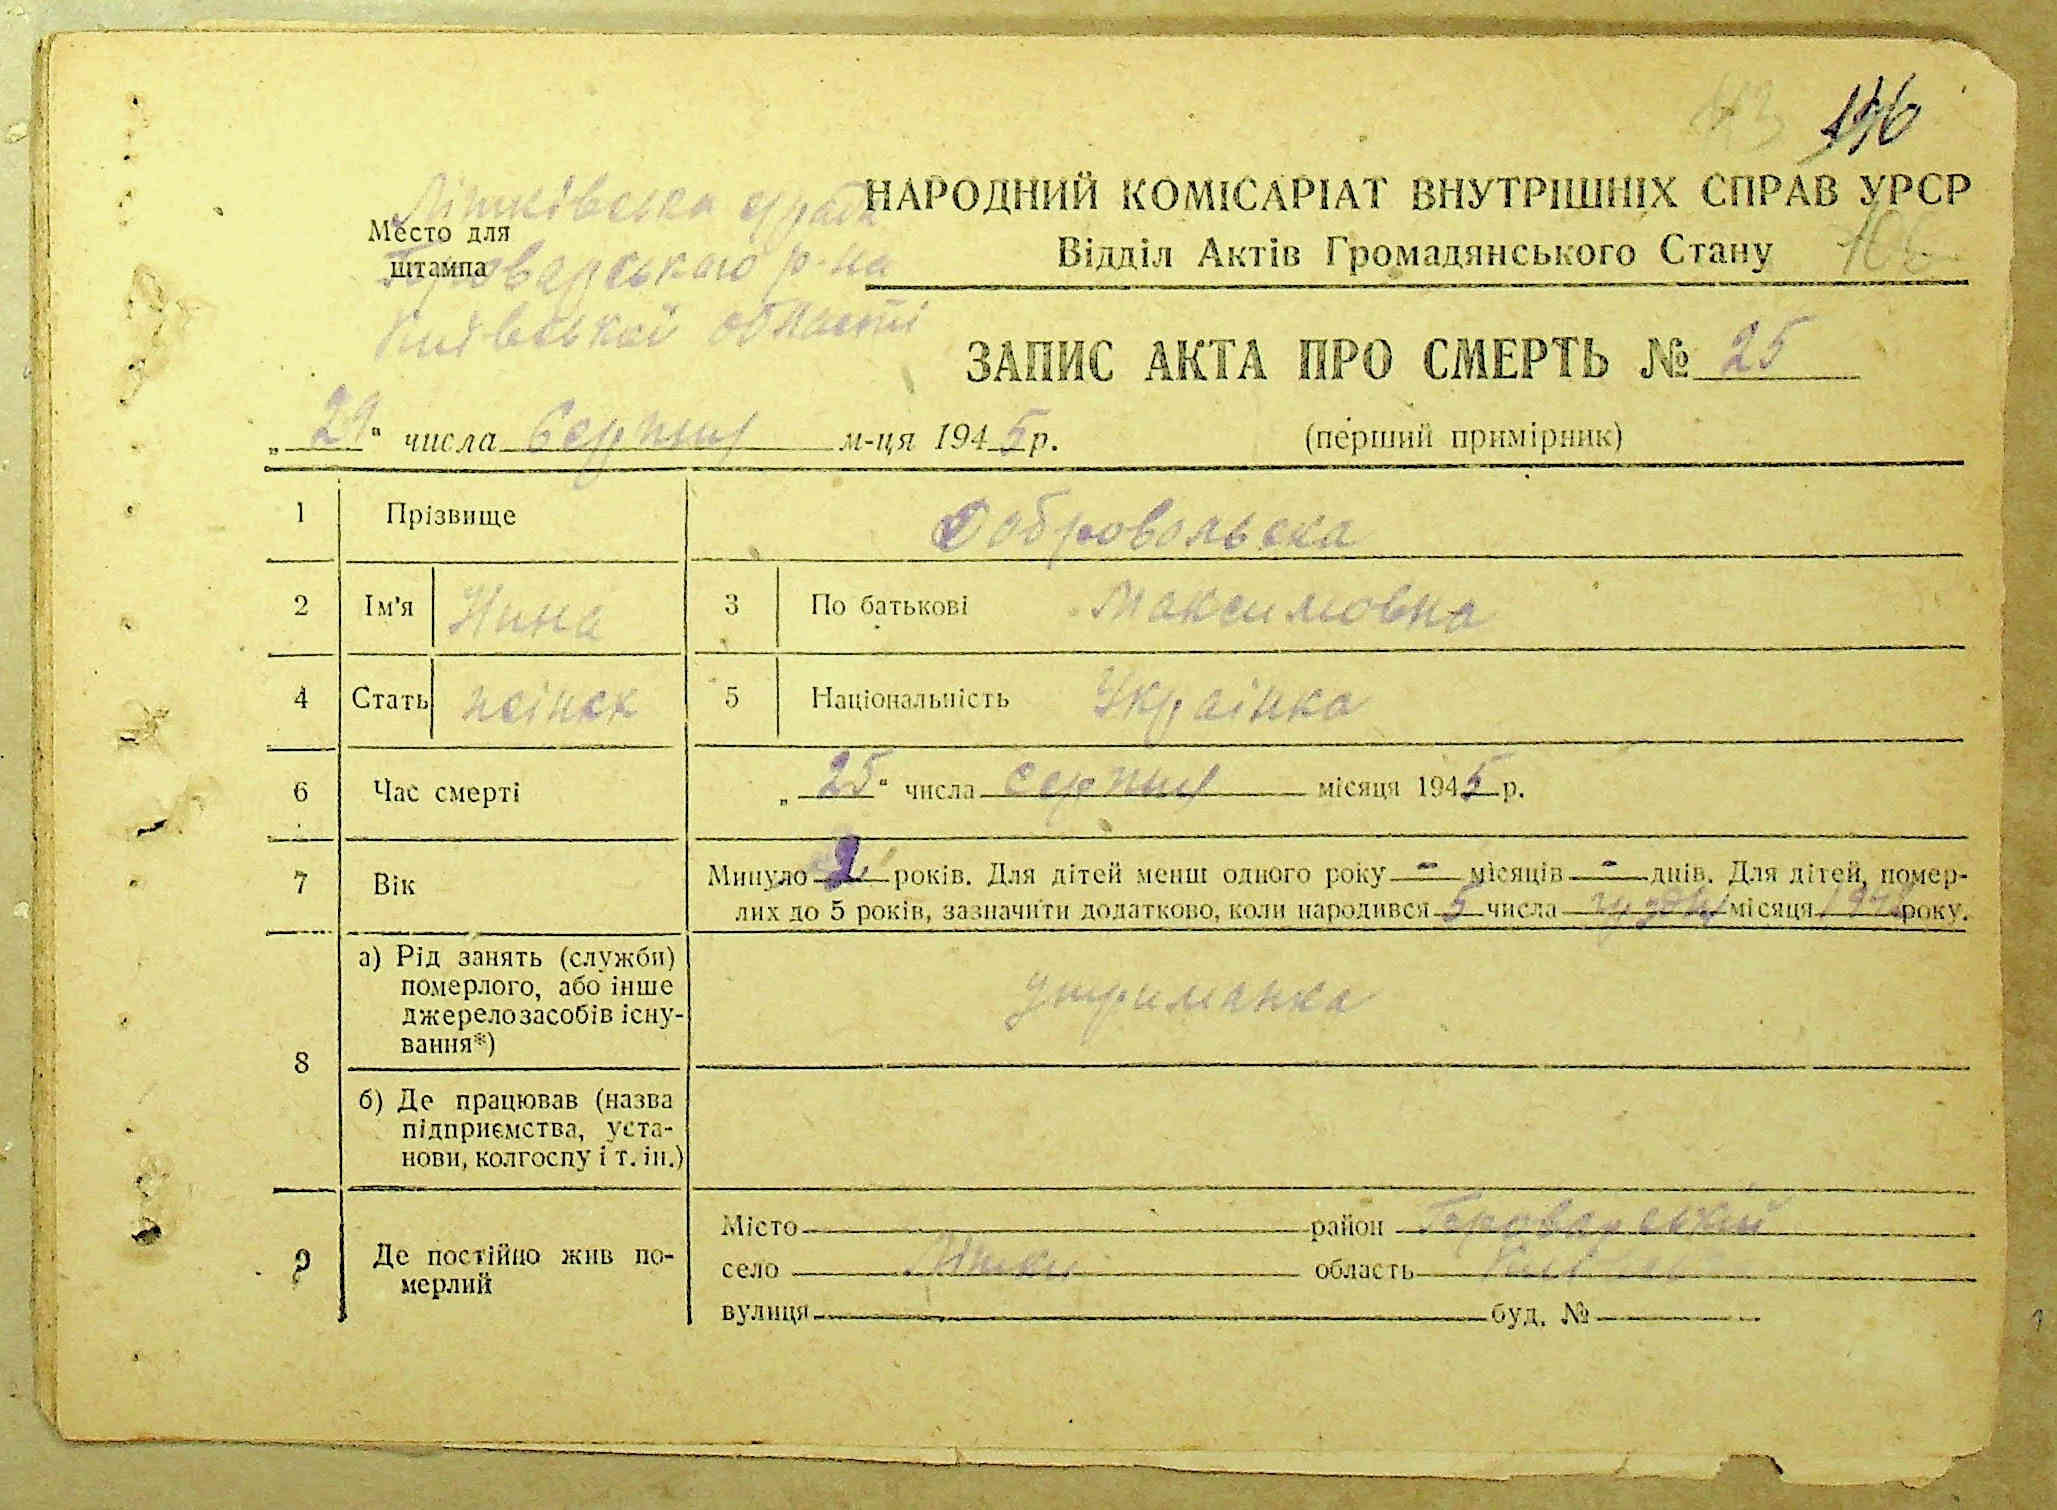 43 116
Літківська с/рада
НАРОДНИЙ КОМІСАРІАТ ВНУТРІШНІХ СПРАВ УРСР
Место для штампа
Броварського р-на
Відділ Актів Громадянського Стану 106
Київської області
ЗАПИС АКТА ПРО СМЕРТЬ № 25
„29“ числа Серпня м-ця 1945 р.
(перший примірник)
1 Прізвище Добровольска
2 Ім'я Нина 3 По батькові Максимовна
4 Стать жінох 5 Національність Українка
6 Час смерті „25“ числа серпня місяця 1945 р.
7 Вік Минуло 2 років. Для дітей менш одного року - місяців - днів. Для дітей, помер-
лих до 5 років, зазначити додатково, коли народився 5 числа грудня місяця року.
8 а) Рід занять (службн)
померлого, або інше
джерело засобів існу-
вання*)
утриманка
б) Де працював (назва
підприємства, уста-
нови, колгоспу і т. ін.)
9 Де постійно жив по-
мерлий
Місто район Броварський
село Літки область Київськ
вулиця буд. №